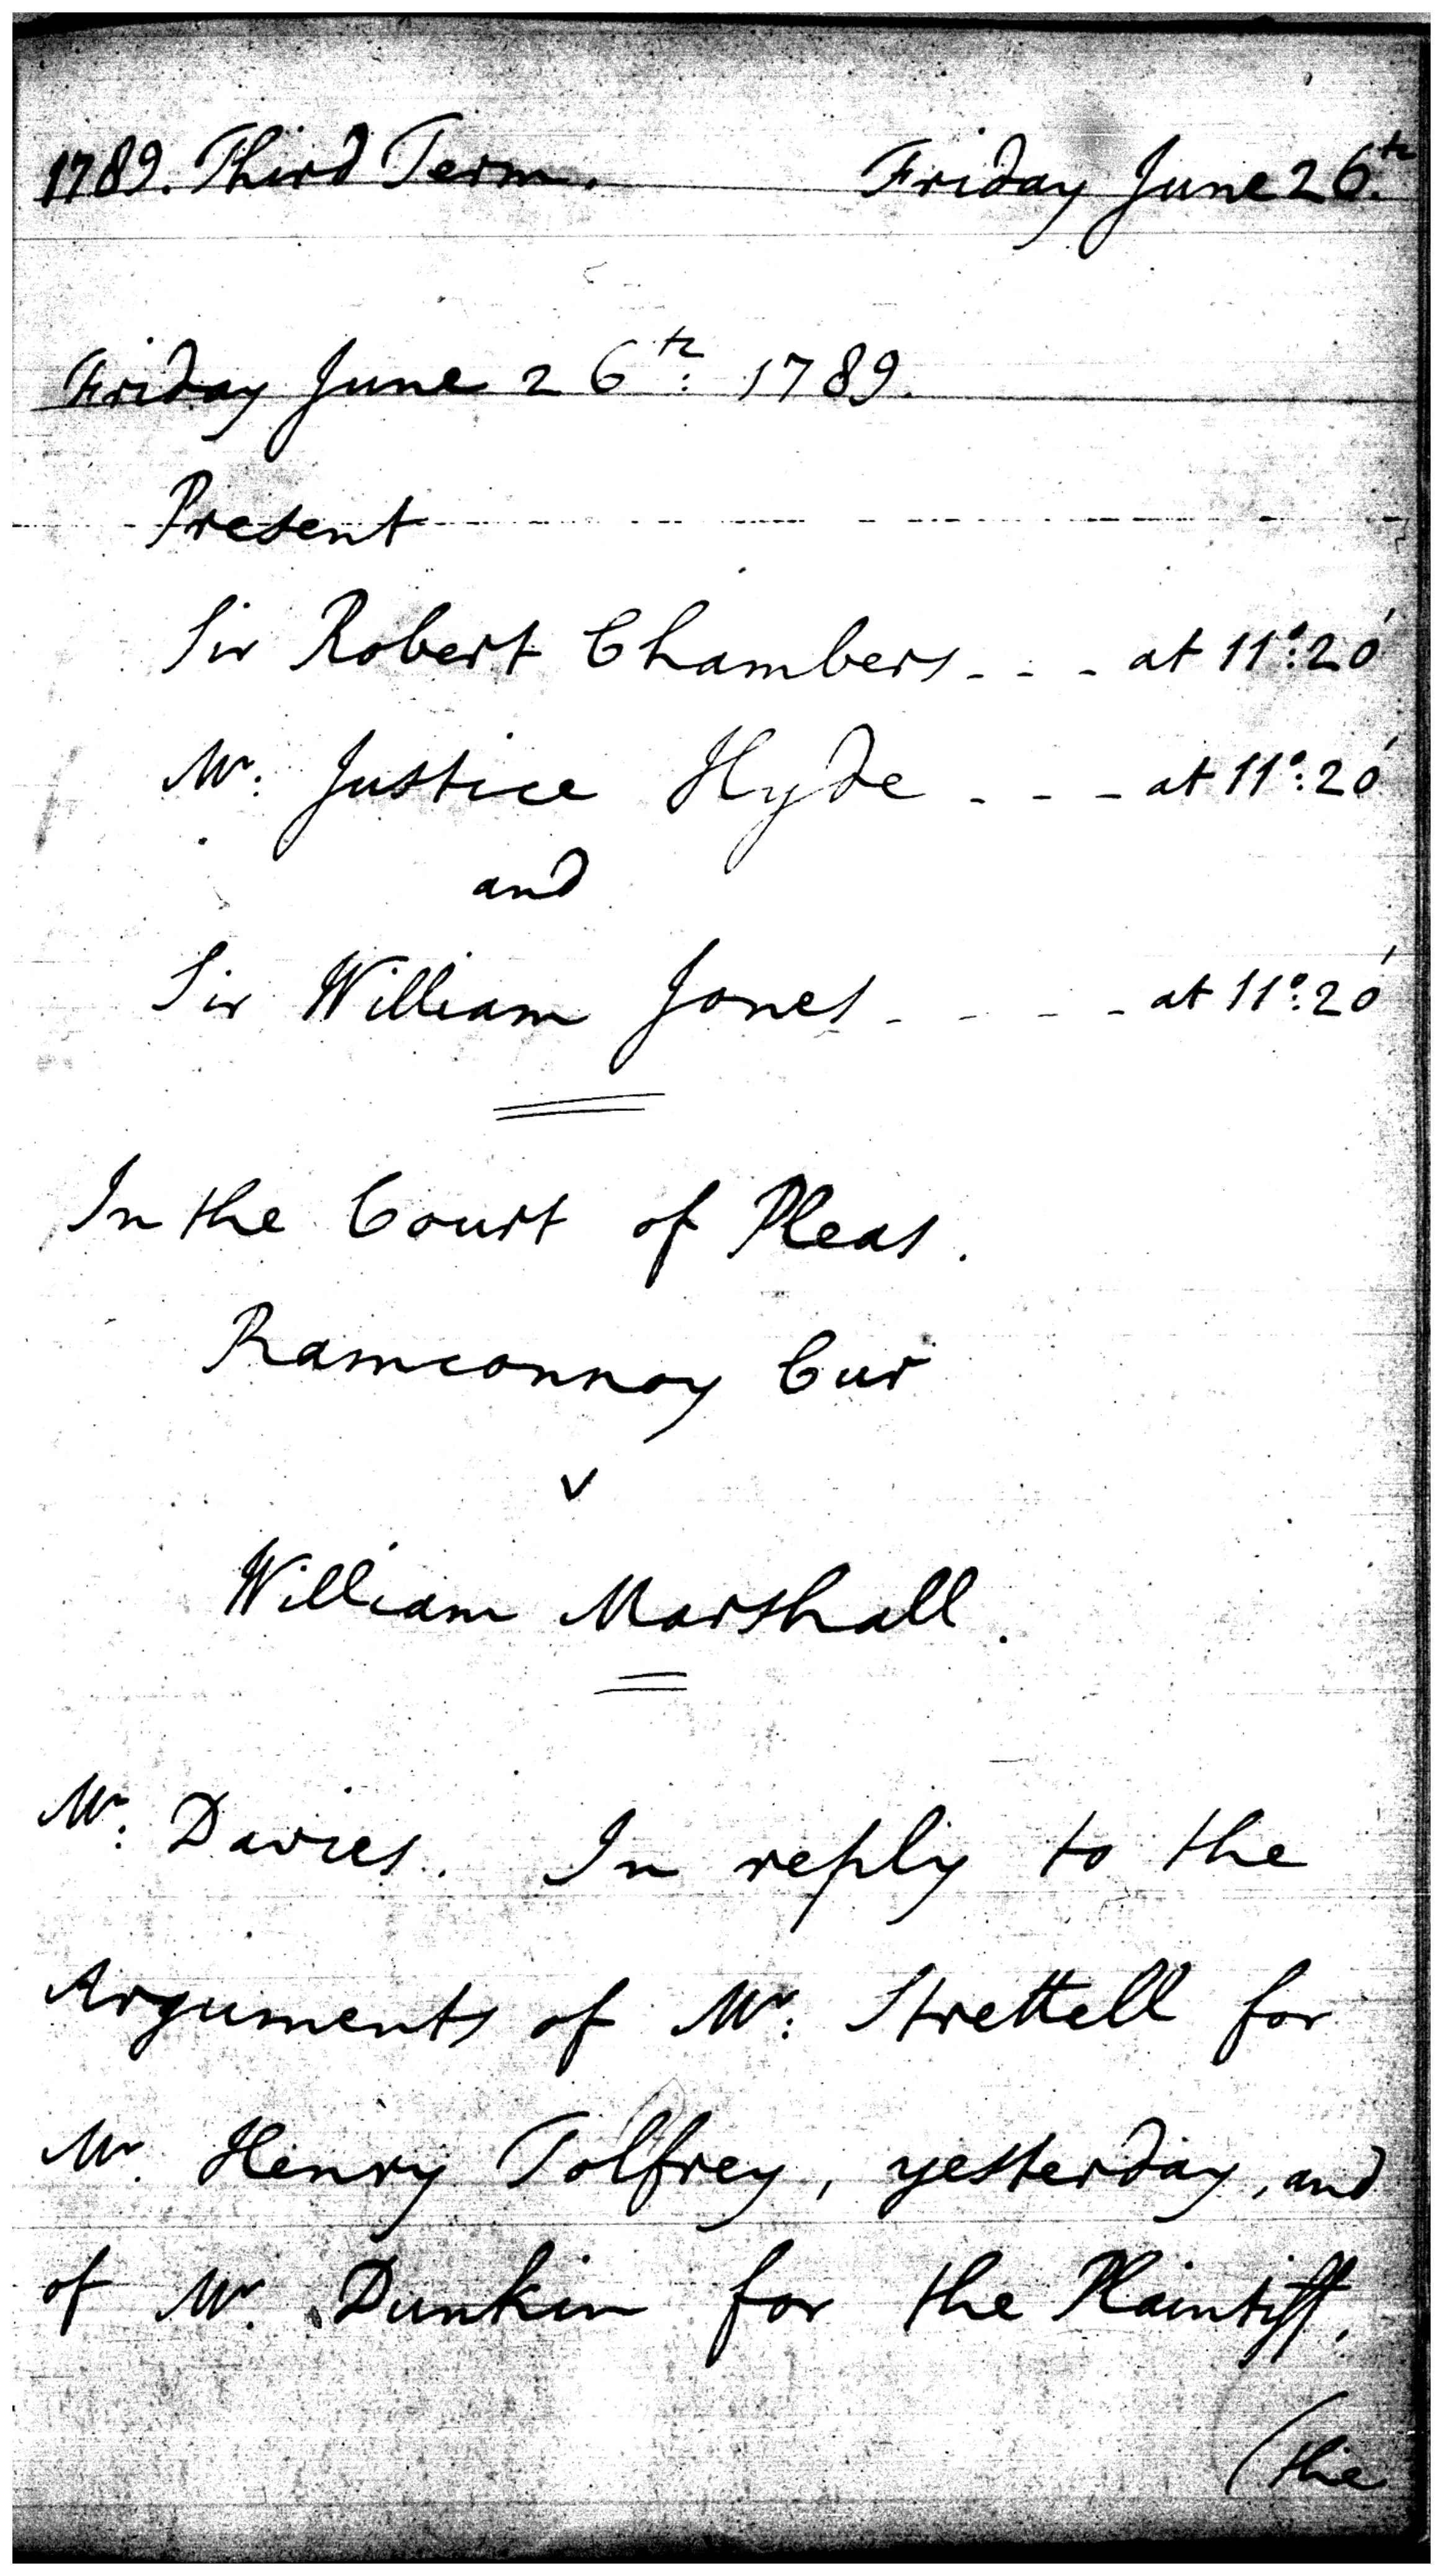 1789. Third Term. Friday June 26.th
Friday June 26th: 1789.
Present
Sir Robert Chambers - - - at 11°:20'
Mr: Justice Hyde - - - at 11°:20'
and
Sir William Jones - - - - at 11°:20'
In the Court of Pleas.
Ramconnoy Cur
v
William Marshall.
Mr: Davies. In reply to the
Arguments of Mr: Strettell for
Mr. Henry Tolfrey, yesterday, and
of Mr. Dunkin for the Plaintiff,
(the